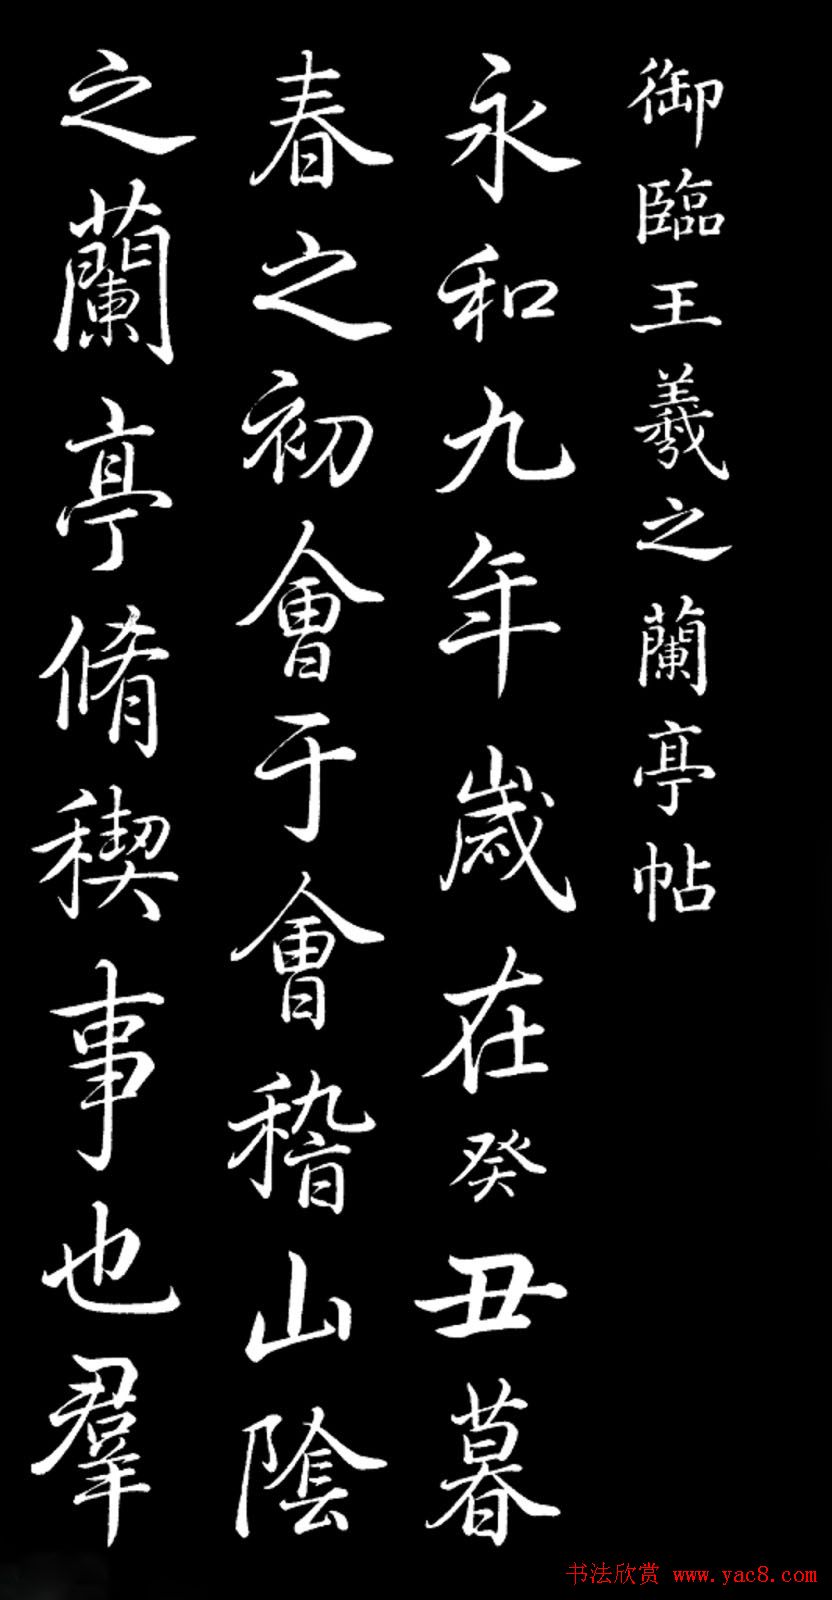 御臨王羲之蘭亭帖
永和九年歲在癸丑暮
春之初會于會稽山陰
之蘭亭脩稧事也羣
书法欣赏 www.yac8.com